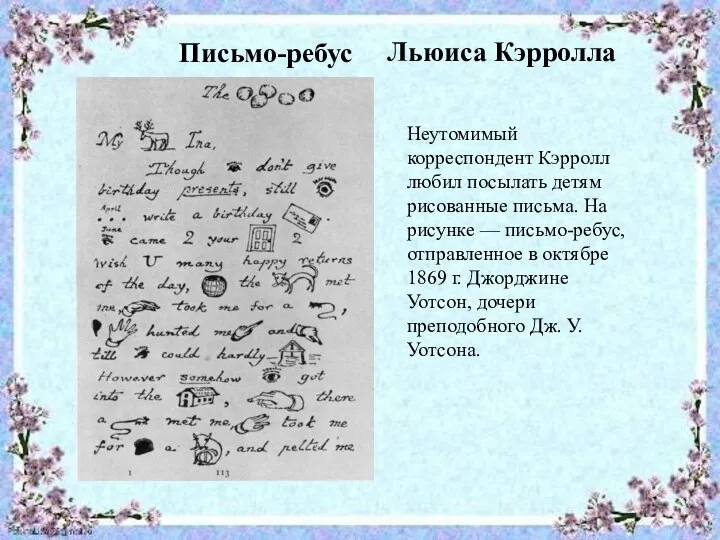 Письмо-ребус Льюиса Кэрролла
The
My Ina,
Though don't give
birthday presents, still
April
... write a birthday
June
came 2 your 2
wish U many happy returns
of the day, the met
me, took me for a ,
hunted me and
till could hardly
However somehow got
into the , there
a met me, took me
for a , and pelted me
1 113
Неутомимый
корреспондент Кэрролл
любил посылать детям
рисованные письма. На
рисунке — письмо-ребус,
отправленное в октябре
1869 г. Джорджине
Уотсон, дочери
преподобного Дж. У.
Уотсона.